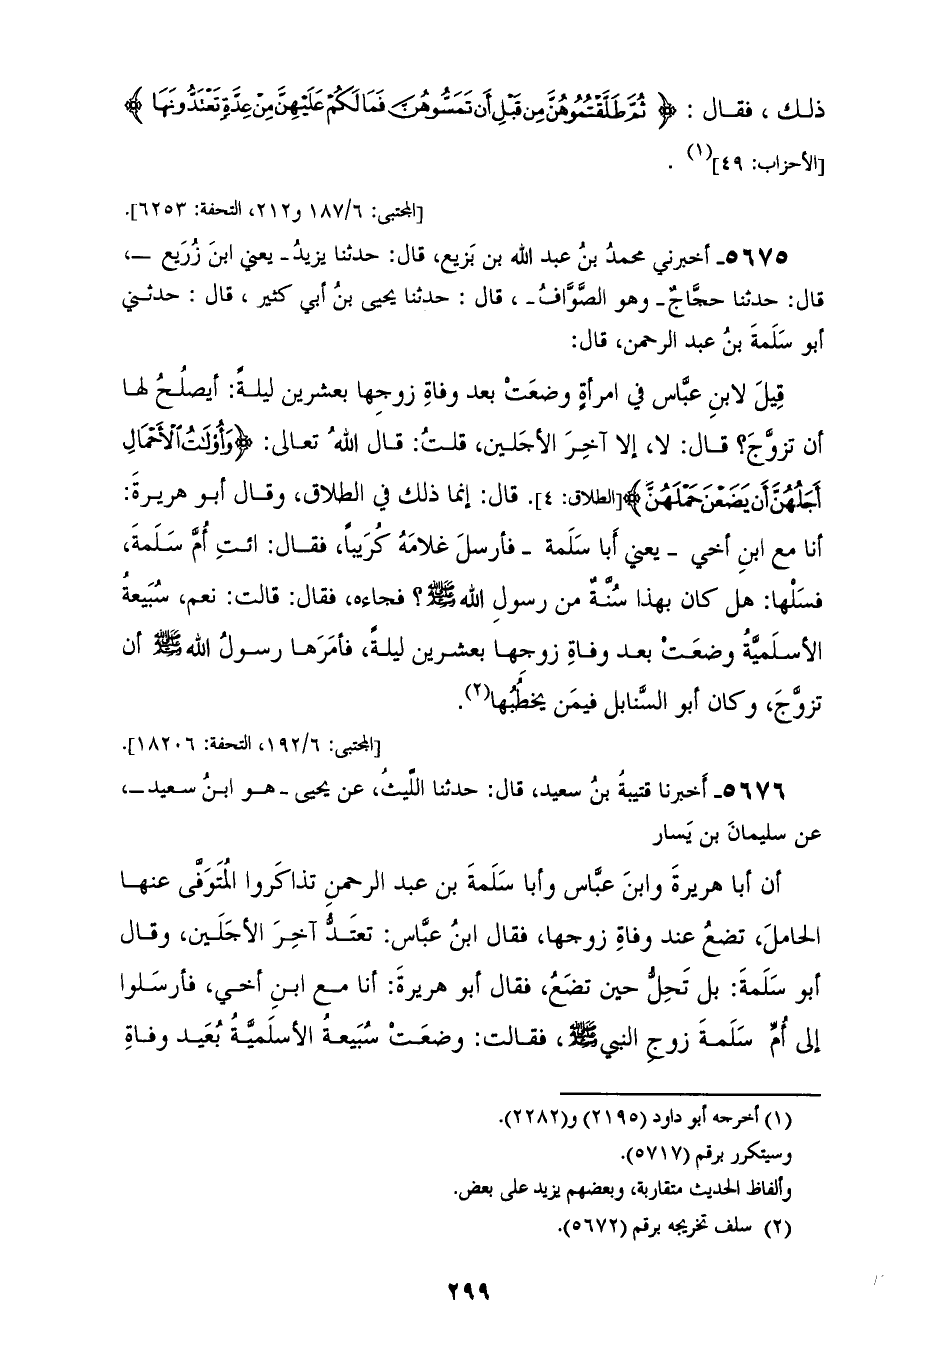 ذلك ، فقال : ﴿ ثُمَّ طَلَّقْتُمُوهُنَّ مِن قَبْلِ أَن تَمَسُّوهُنَّ فَمَا لَكُمْ عَلَيْهِنَّ مِنْ عِدَّةٍ تَعْتَدُّونَهَا ﴾
[الأحزاب: ٤٩](١) .
[المجتبى: ١٨٧/٦ و٢١٢، التحفة: ٦٢٥٣].
٥٦٧٥ـ أخبرني محمدُ بنُ عبد الله بن بَزيع، قال: حدثنا يزيدُ ـ يعني ابنَ زُرَيع ـ،
قال: حدثنا حجَّاجٌ ـ وهو الصَّوَّافُ ـ ، قال : حدثنا يحيى بنُ أبي كثير ، قال : حدثني
أبو سَلَمةَ بنُ عبد الرحمن، قال:
قِيلَ لابنِ عبَّاس في امرأةٍ وضعَتْ بعد وفاةِ زوجِها بعشرين ليلةً: أيصلُحُ لها
أن تزوَّجَ؟ قال: لا، إلا آخِرَ الأجَلين، قلتُ: قال اللهُ تعالى: ﴿وَأُوْلَٰتُ ٱلْأَحْمَالِ
أَجَلُهُنَّ أَن يَضَعْنَ حَمْلَهُنَّ﴾[الطلاق: ٤]. قال: إنما ذلك في الطلاق، وقال أبو هريرةَ:
أنا مع ابنِ أخي ـ يعني أبا سَلَمة ـ فأرسلَ غلامَهُ كُرَيباً، فقال: ائتِ أُمَّ سَلَمةَ،
فسَلْها: هل كان بهذا سُنَّةٌ من رسولِ الله ﷺ؟ فجاءه، فقال: قالت: نعم، سُبَيعةُ
الأسلَميَّةُ وضعَتْ بعد وفاةِ زوجِها بعشرين ليلةً، فأمَرَها رسولُ الله ﷺ أن
تزوَّجَ، وكان أبو السَّنابل فيمَن يخطُبُها(٢).
[المجتبى: ١٩٢/٦، التحفة: ١٨٢٠٦].
٥٦٧٦ـ أخبرنا قتيبةُ بنُ سعيد، قال: حدثنا اللَّيثُ، عن يحيى ـ هو ابنُ سعيد ـ،
عن سليمانَ بن يَسار
أن أبا هريرةَ وابنَ عبَّاس وأبا سَلَمةَ بن عبد الرحمنِ تذاكَروا المُتَوَفَّى عنها
الحاملَ، تضعُ عند وفاةِ زوجها، فقال ابنُ عبَّاس: تعتَدُّ آخِرَ الأجَلَين، وقال
أبو سَلَمةَ: بل تَحِلُّ حين تضَعُ، فقال أبو هريرةَ: أنا مع ابنِ أخي، فأرسَلوا
إلى أُمِّ سَلَمةَ زوجِ النبي ﷺ ، فقالت: وضعَتْ سُبَيعةُ الأسلَميَّةُ بُعَيد وفاةِ
(١) أخرجه أبو داود (٢١٩٥) و(٢٢٨٢).
وسيتكرر برقم (٥٧١٧).
وألفاظ الحديث متقاربة، وبعضهم يزيد على بعض.
(٢) سلف تخريجه برقم (٥٦٧٢).
٢٩٩